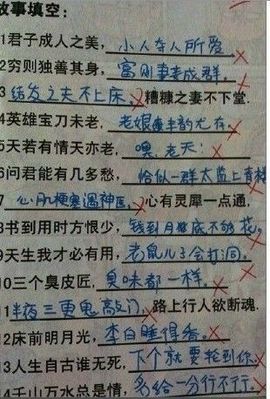 故事填空:
1君子成人之美,小人夺人所爱.
2穷则独善其身,富则妻妾成群.
3结发之夫不上床,糟糠之妻不下堂.
4英雄宝刀未老,老娘丰韵尤存.
5天若有情天亦老,噢,老天!
6问君能有几多愁,恰似一群太监上青楼
7心肌梗塞遇神医,心有灵犀一点通.
8书到用时方恨少,钱到月底不够花.
9天生我才必有用,老鼠儿子会打洞.
10三个臭皮匠,臭味都一样.
11半夜三更鬼敲门,路上行人欲断魂.
12床前明月光,李白睡得香.
13人生自古谁无死,下个就要轮到你
14千山万水总是情,多给一分行不行.